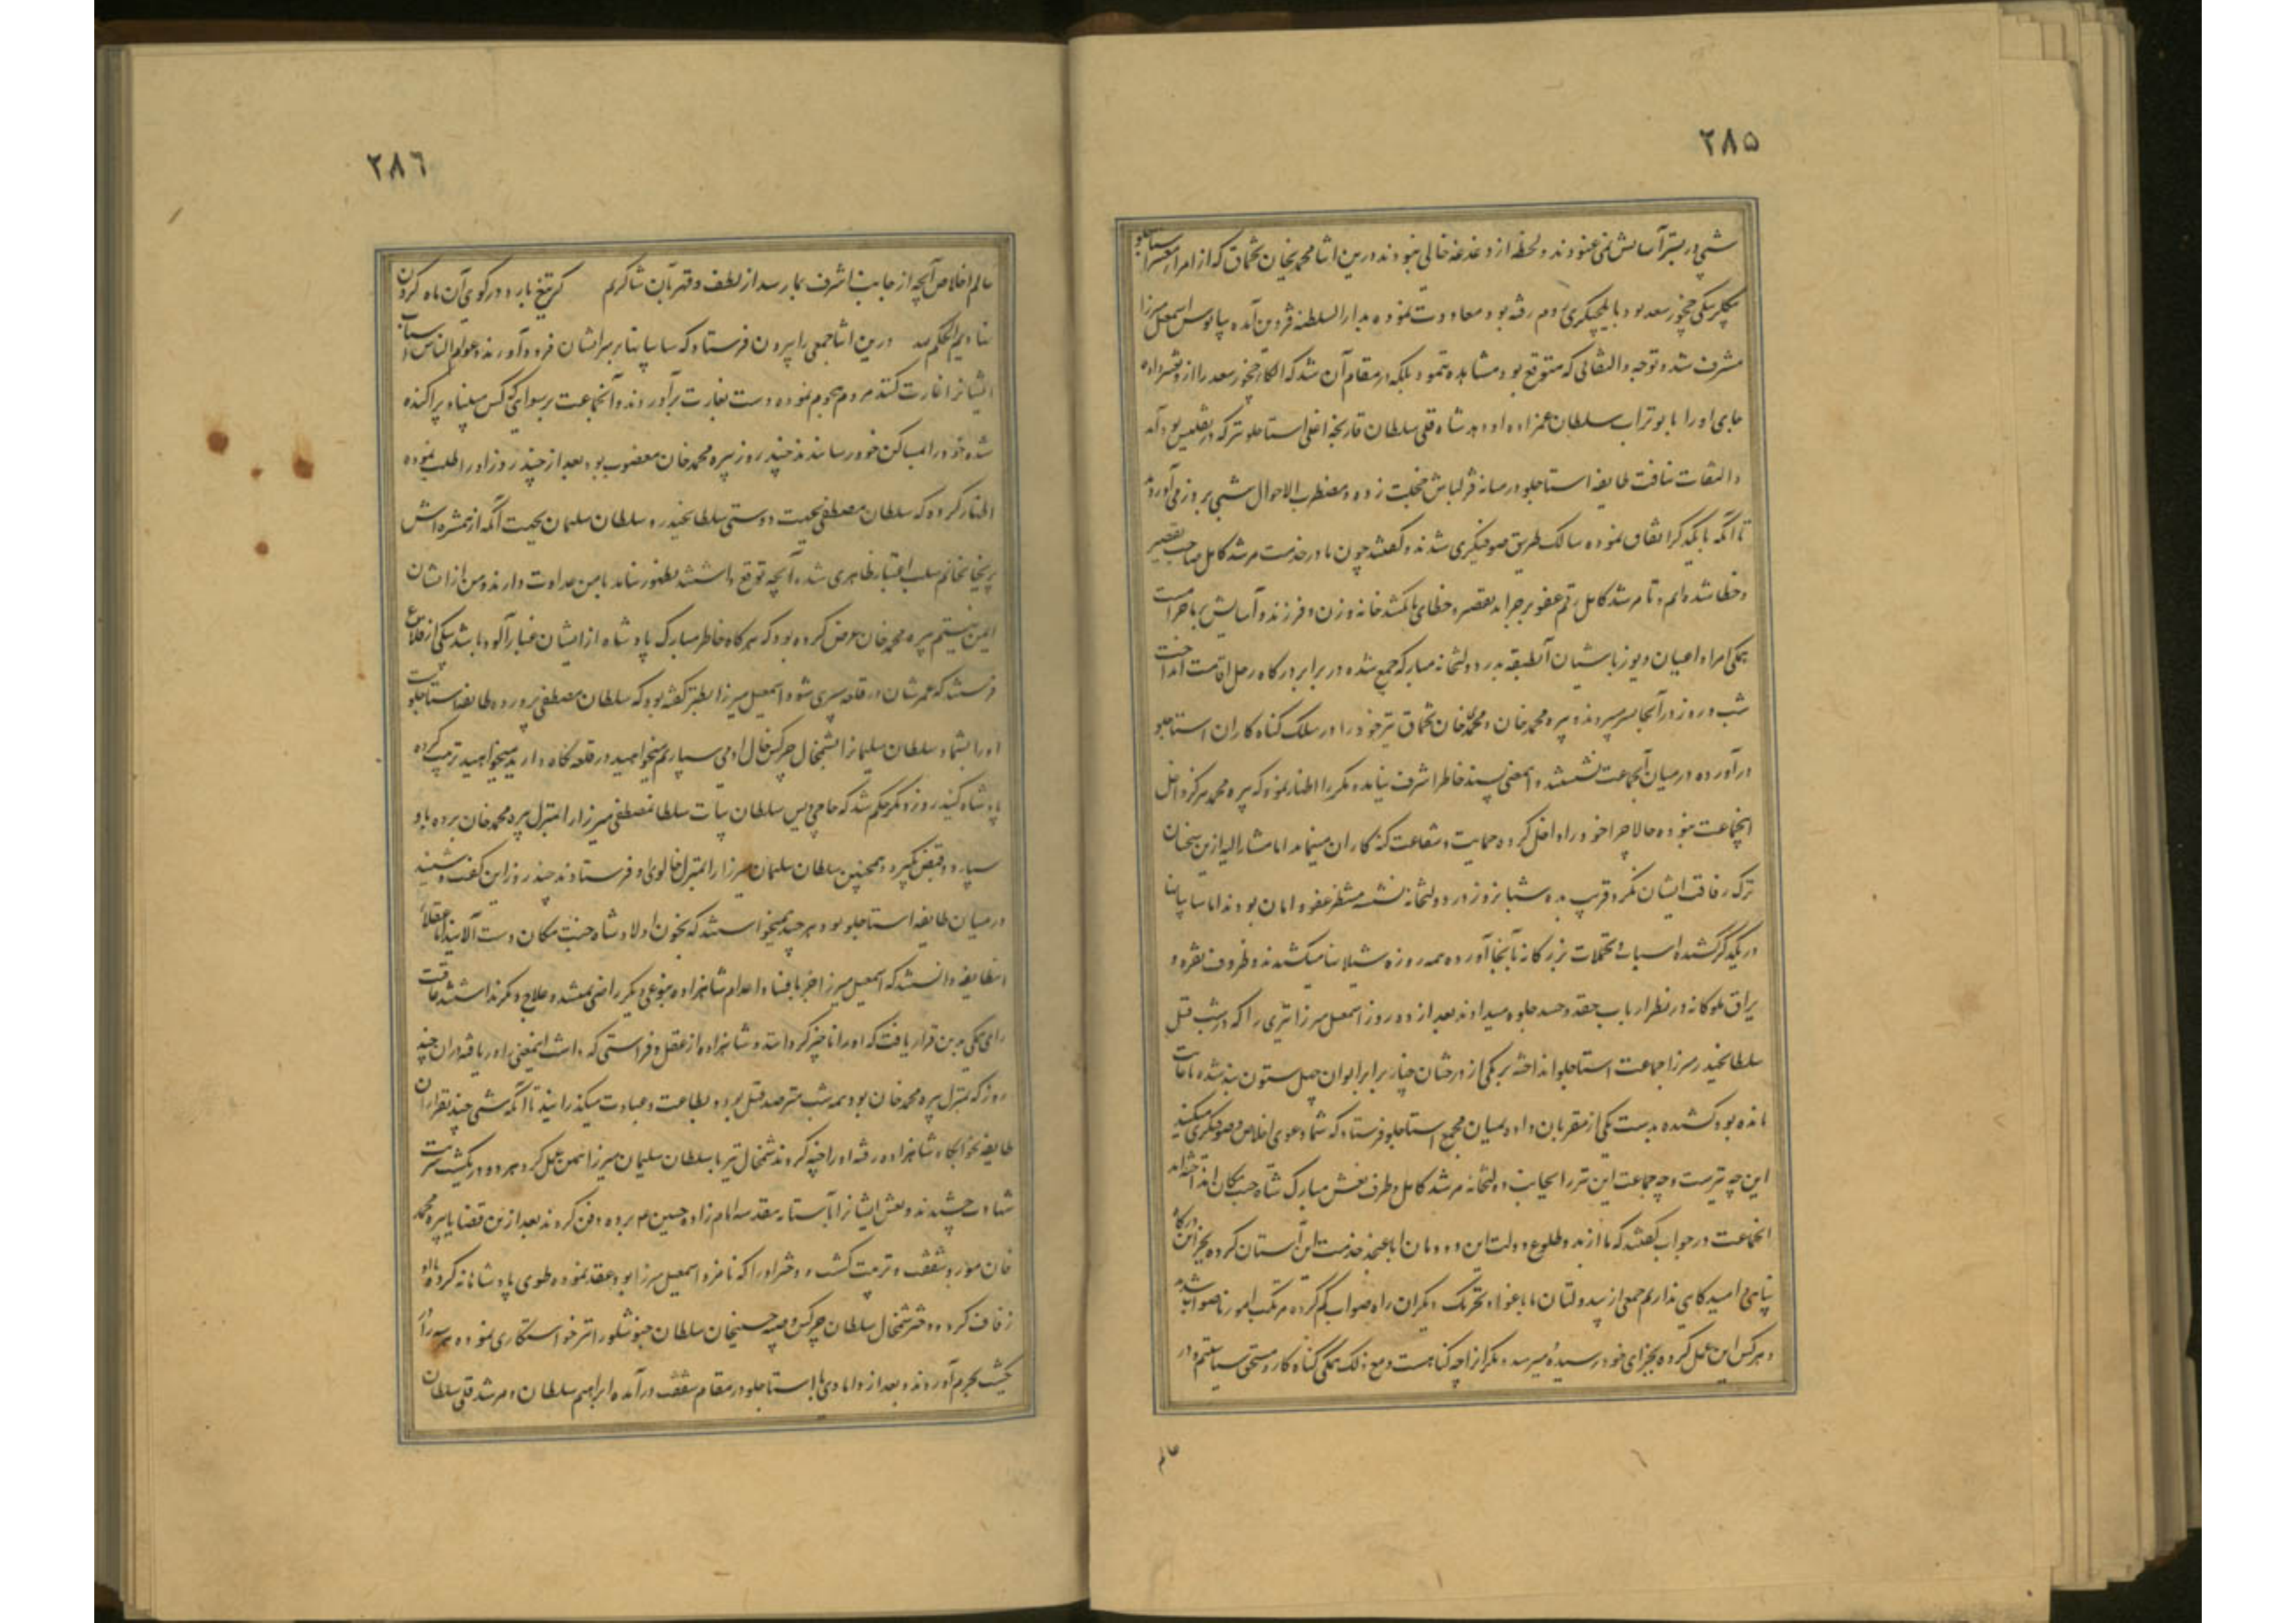 ۲۸۵
شبی در بستر آسایش نمی‌غنودند و لحظهٔ از دغدغه خالی نبودند درین اثنا محمدیخان تخماق که از امراء معتبر استاجلو
بیگلربیگی چخور سعد بود بایلچیگری روم رفته بود معاودت نموده بدار السلطنه قزوین آمده بپابوس اسمعیل میرزا
مشرف شد و توجه و التفاتی که متوقع بود مشاهده ننمود بلکه در مقام آن شد که الکاء چخور سعد را ازو تغییر داده
جای او را بابوتراب سلطان عمزاده او دهد شاه قلی سلطان قارنجه اغلی استاجلو نیز که در تفلیس بود آمد
و التفات نیافت طایفه استاجلو در میانه قزلباش خجلت زده و مضطرب الاحوال شبی بروز می‌آوردند
تا آنکه با یکدگر اتفاق نموده سالک طریق صوفیگری شدند و گفتند چون ما در خدمت مرشد کامل صاحب تقصیر
و خطا شده‌ایم و تا مرشد کامل رقم عفو بر جراید تقصیر و خطای ما نکشد خانه و زن و فرزند و آسایش بر ما حرامست
همگی امرا و اعیان و یوزباشیان آنطبقه بدر دولتخانه مبارکه جمع شده در برابر درگاه رحل اقامت انداخت
شب و روز در آنجا بسر میبردند و پیره محمد خان و محمدی خان تخماق نیز خود را در سلک گناه کاران استاجلو
در آورده در میان آنجماعت نشستند و اینمعنی پسند خاطر اشرف نیامده مکررا اظهار نمود که پیره محمد هرگز داخل
اینجماعت نبوده حالا چرا خود را داخل کرده حمایت و شفاعت گنه‌کاران مینماید اما مشار الیه ازین سخنان
ترک رفاقت ایشان نکرد قریب بده شبانروز در دولتخانه نشسته منتظر عفو و امان بودند اما سایبانها
در یکدگر کشیده اسباب و تجملات بزرگانه بآنجا آورده همه روزه شیلانها میکشیدند و ظروف نقره و
یراق ملوکانه در نظر ارباب حقد و حسد جلوه میدادند بعد از ده روز اسمعیل میرزا تیری را که در شب قتل
سلطانحیدر میرزا جماعت استاجلو انداخته بر یکی از درختان چنار برابر ایوان چهل ستون بند شده تا غایت
مانده بود کشیده بدست یکی از مقربان داده بمیان مجمع استاجلو فرستاد که شما دعوی اخلاص و صوفیگری میکنید
این چه تیرست و چه جماعت این تیر را بجانب دولتخانه مرشد کامل و طرف نعش مبارک شاه جنت مکان انداخته‌اند
انجماعت در جواب گفتند که ما از بدو طلوع دولت این دودمان ابا عن جد خدمت این آستان کرده بجز این درگاه
پناهی و امیدگاهی نداریم جمعی از بیدولتان ما باغواء و تحریک دیگران راه صواب گم کرده مرتکب امور ناصواب شدند
و هر کس این عمل کرده بجزای خود رسیده میرسد دیگرانرا چه گناهست و مع ذلک همگی گناه کار و مستحق سیاستیم و در
عالم
۲۸۶
عالم اخلاص آنچه از جانب اشرف بما رسد از لطف و قهر بآن شاکریم گر تیغ بارد در کوی آن ماه گردن
نهادیم الحکم لله درین اثنا جمعی را بیرون فرستاد که سایبانها بر سر ایشان فرود آورند و عوام الناس اسباب
ایشانرا غارت کنند مردم هجوم نموده دست بغارت برآوردند و آنجماعت برسوای کس پناه پراکنده
شده خود را بمساکن خود رسانیدند چند روز پیره محمد خان مغضوب بود بعد از چند روز او را طلب نموده
اظهار کرده که سلطان مصطفی بجهت دوستی سلطانحیدر و سلطان سلیمان بجهت آنکه از همشیره‌اش
پریخانخانم سلب اعتبار ظاهری شده آنچه توقع داشتند بظهور نیامد با من عداوت دارند و من از ایشان
ایمن نیستم پیره محمد خان عرض کرده بود که هرگاه خاطر مبارک پادشاه ازیشان غبارآلود باشد بیکی از قلاع
فرستند که عمرشان در قلعه سپری شود اسمعیل میرزا بطنز گفته بود که سلطان مصطفی پرورده طایفه استاجلوست
او را بشما و سلطان سلیمانرا بشمخال چرکس خال او می‌سپاریم میخواهید در قلعه نگاه دارید میخواهید تربیت کرده
پادشاه کنید روز دیگر حکم شد که حاجی ویس سلطان بیات سلطان مصطفی میرزا را بمنزل پیره محمد خان برده باو
سپارد و قبض بگیرد و همچنین سلطان سلیمان میرزا را بمنزل خالوی او فرستادند چند روز این گفت و شنید
در میان طایفه استاجلو بود و هر چند نمیخواستند که بخون اولاد شاه جنت مکان دست آلایند اما عقلاء
انطایفه دانستند که اسمعیل میرزا جز بافناء و اعدام شاهزاده بنوعی دیگر راضی نمیشد و علاج دیگر نداشتند عاقبت
رای همگی بدین قرار یافت که او را ناچیز گردانند و شاهزاده از عقل و فراستی که داشت اینمعنی را دریافته در ان چند
روز که بمنزل پیره محمد خان بود همه شب مترصد قتل بود و بطاعت و عبادت میگذرانید تا آنکه شبی چند نفر از ان
طایفه بخوابگاه شاهزاده رفته او را خپه کردند شمخال نیز با سلطان سلیمان میرزا همین عمل کرد هر دو در یکشب شربت
شهادت چشیدند و نعش ایشانرا بآستانه مقدسه امام زاده حسین ع برده دفن کردند بعد ازین قضایا پیره محمد
خان مورد شفقت و تربیت گشت و دختر او را که نامزد اسمعیل میرزا بود عقد نموده طوی پادشاهانه کرد و با او
زفاف کرده و دختر شمخال سلطان چرکس و صبیه حسینخان سلطان خنوسلو را نیز خواستگاری نموده هر سه را در
یکشب بحرم آوردند و بعد از دامادی با استاجلو در مقام شفقت درآمده ابراهیم سلطان و مرشد قلی سلطان